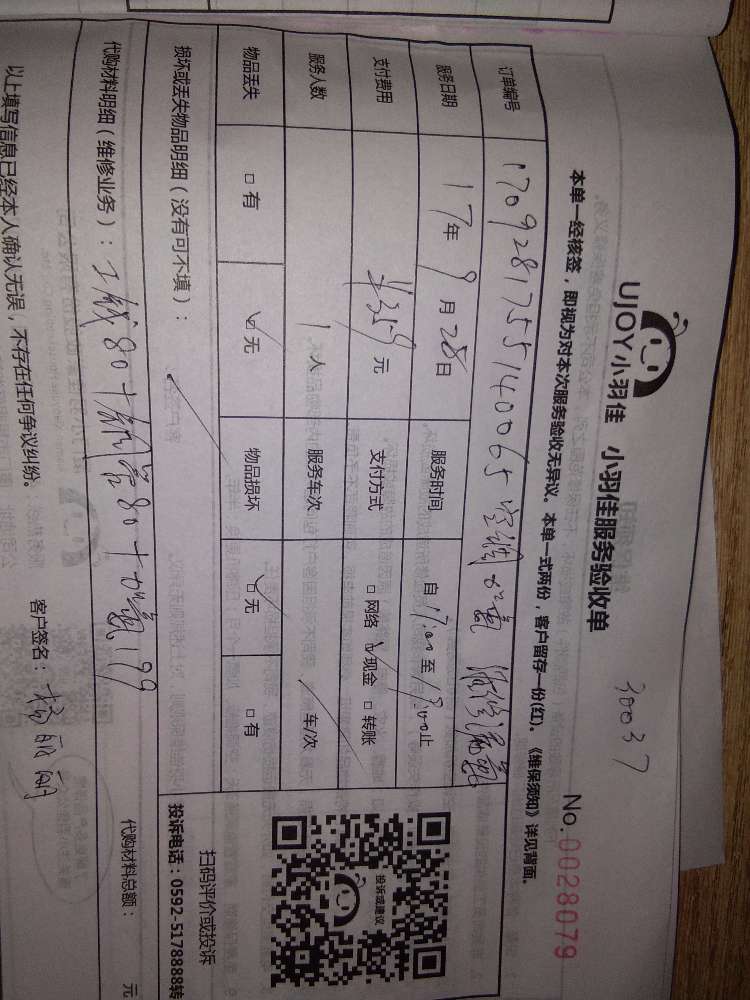 30037
UJOY小羽佳 小羽佳服务验收单
No.0028079
本单一经核签，即视为对本次服务验收无异议。本单一式两份，客户留存一份(红)。《维保须知》详见背面。
订单编号 170928175514 0065 空调加氟
服务日期 17年9月28日 服务时间 自17:00至18:00止
支付费用 ¥359元 支付方式 □网络 ☑现金 □转账
服务人数 1人 服务车次 / 车/次
物品丢失 □有 ☑无 物品损坏 ☑无 □有
损坏或丢失物品明细（没有可不填）：
投诉或建议
UJOY小羽佳
扫码评价或投诉
投诉电话：0592-5178888转
代购材料明细（维修业务）：工钱80+铜管80+加氟199
代购材料总额： 元
以上填写信息已经本人确认无误，不存在任何争议纠纷。
客户签名：杨丽